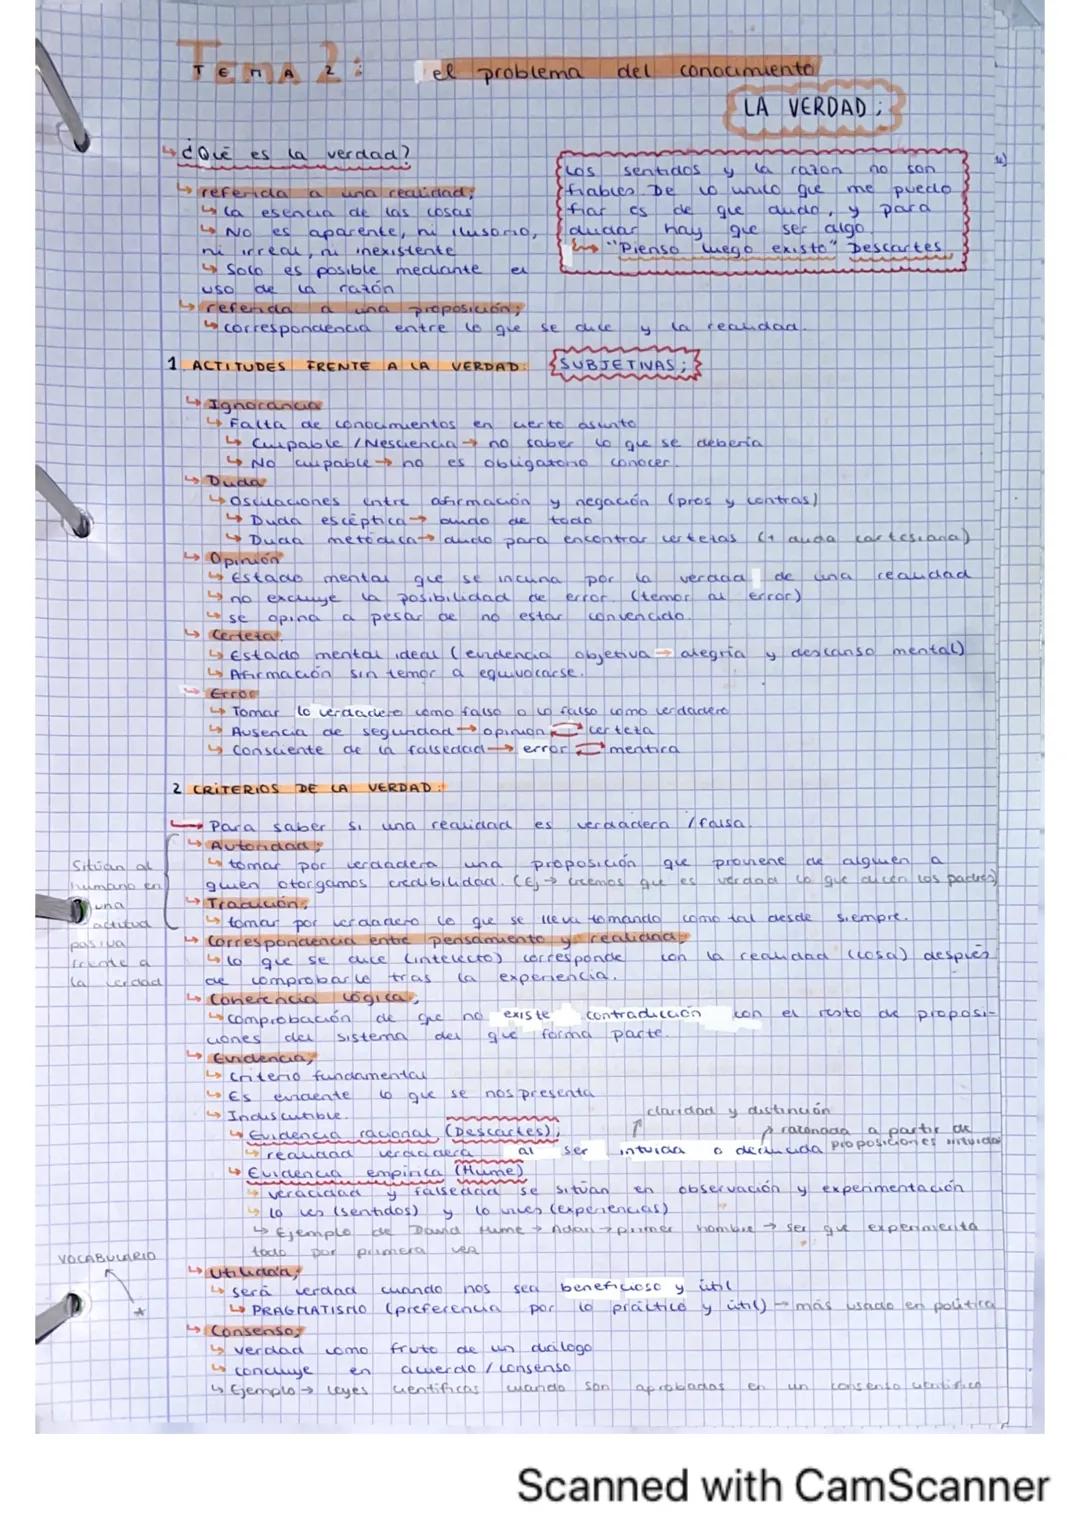 TEMA 2: el problema del conocimiento
LA VERDAD;
↳ ¿Qué es la verdad?
↳ referida a una realidad;
↳ la esencia de las cosas
↳ No es aparente, ni ilusorio,
ni irreal, ni inexistente
↳ Solo es posible mediante el
uso de la razón
Los sentidos y la razón no son
fiables. De lo único que me puedo
fiar es de que dudo, y para
dudar hay que ser algo.
↳ "Pienso luego existo" Descartes
↳ referida a una proposición;
↳ correspondencia entre lo que se dice y la realidad.
1 ACTITUDES FRENTE A LA VERDAD: SUBJETIVAS;
↳ Ignorancia
↳ Falta de conocimientos en cierto asunto
↳ Culpable / Nesciencia → no saber lo que se debería
↳ No culpable → no es obligatorio conocer.
↳ Duda
↳ Oscilaciones entre afirmación y negación (pros y contras)
↳ Duda escéptica → dudo de todo
↳ Duda metódica → dudo para encontrar certezas (+ duda cartesiana)
↳ Opinión
↳ Estado mental que se inclina por la verdad de una realidad
↳ no excluye la posibilidad de error (temor al error)
↳ se opina a pesar de no estar convencido.
↳ Certeza.
↳ Estado mental ideal (evidencia objetiva → alegría y descanso mental)
↳ Afirmación sin temor a equivocarse.
↳ Error
↳ Tomar lo verdadero como falso o lo falso como verdadero
↳ Ausencia de seguridad → opinión ⇄ certeza
↳ Consciente de la falsedad → error ⇄ mentira
2 CRITERIOS DE LA VERDAD:
↳ Para saber si una realidad es verdadera / falsa.
↳ Autoridad;
↳ tomar por verdadera una proposición que proviene de alguien a
quien otorgamos credibilidad. (Ej → creemos que es verdad lo que dicen los padres)
↳ Tradición;
↳ tomar por verdadero lo que se lleva tomando como tal desde siempre.
Sitúan al
humano en
una
actitud
pasiva
frente a
la verdad
↳ Correspondencia entre pensamiento y realidad;
↳ lo que se dice (intelecto) corresponde con la realidad (cosa) después
de comprobarlo tras la experiencia.
↳ Coherencia lógica;
↳ comprobación de que no existe contradicción con el resto de proposi-
ciones del sistema del que forma parte.
↳ Evidencia;
↳ Criterio fundamental
↳ Es evidente lo que se nos presenta
↳ Indiscutible.
claridad y distinción
↳ Evidencia racional (Descartes);
razonada a partir de
proposiciones intuidas
↳ realidad verdadera al ser intuida o deducida
↳ Evidencia empírica (Hume)
↳ veracidad y falsedad se sitúan en observación y experimentación
↳ lo ves (sentidos) y lo vives (experiencias)
↳ Ejemplo de David Hume → Adán → primer hombre → ser que experimenta
todo por primera vez
VOCABULARIO
*
↳ Utilidad;
↳ será verdad cuando nos sea beneficioso y útil
↳ PRAGMATISMO (preferencia por lo práctico y útil) → más usado en política
↳ Consenso;
↳ verdad como fruto de un diálogo
↳ concluye en acuerdo / consenso
↳ Ejemplo → leyes científicas cuando son aprobadas en un consenso científico
Scanned with CamScanner